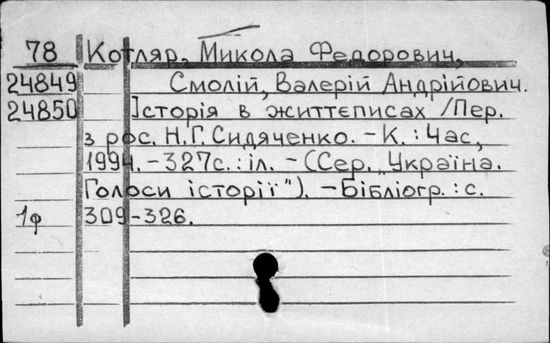 78 Котляр, Микола Федорович,
24849 Смолій, Валерій Андрійович.
24850 Історія в життєписах /Пер.
з рос. Н.Г. Сидяченко. – К. : Час,
1994. – 327с. : іл. – (Сер. „Україна.
Голоси історії"). – Бібліогр. : с.
1ф 309-326.